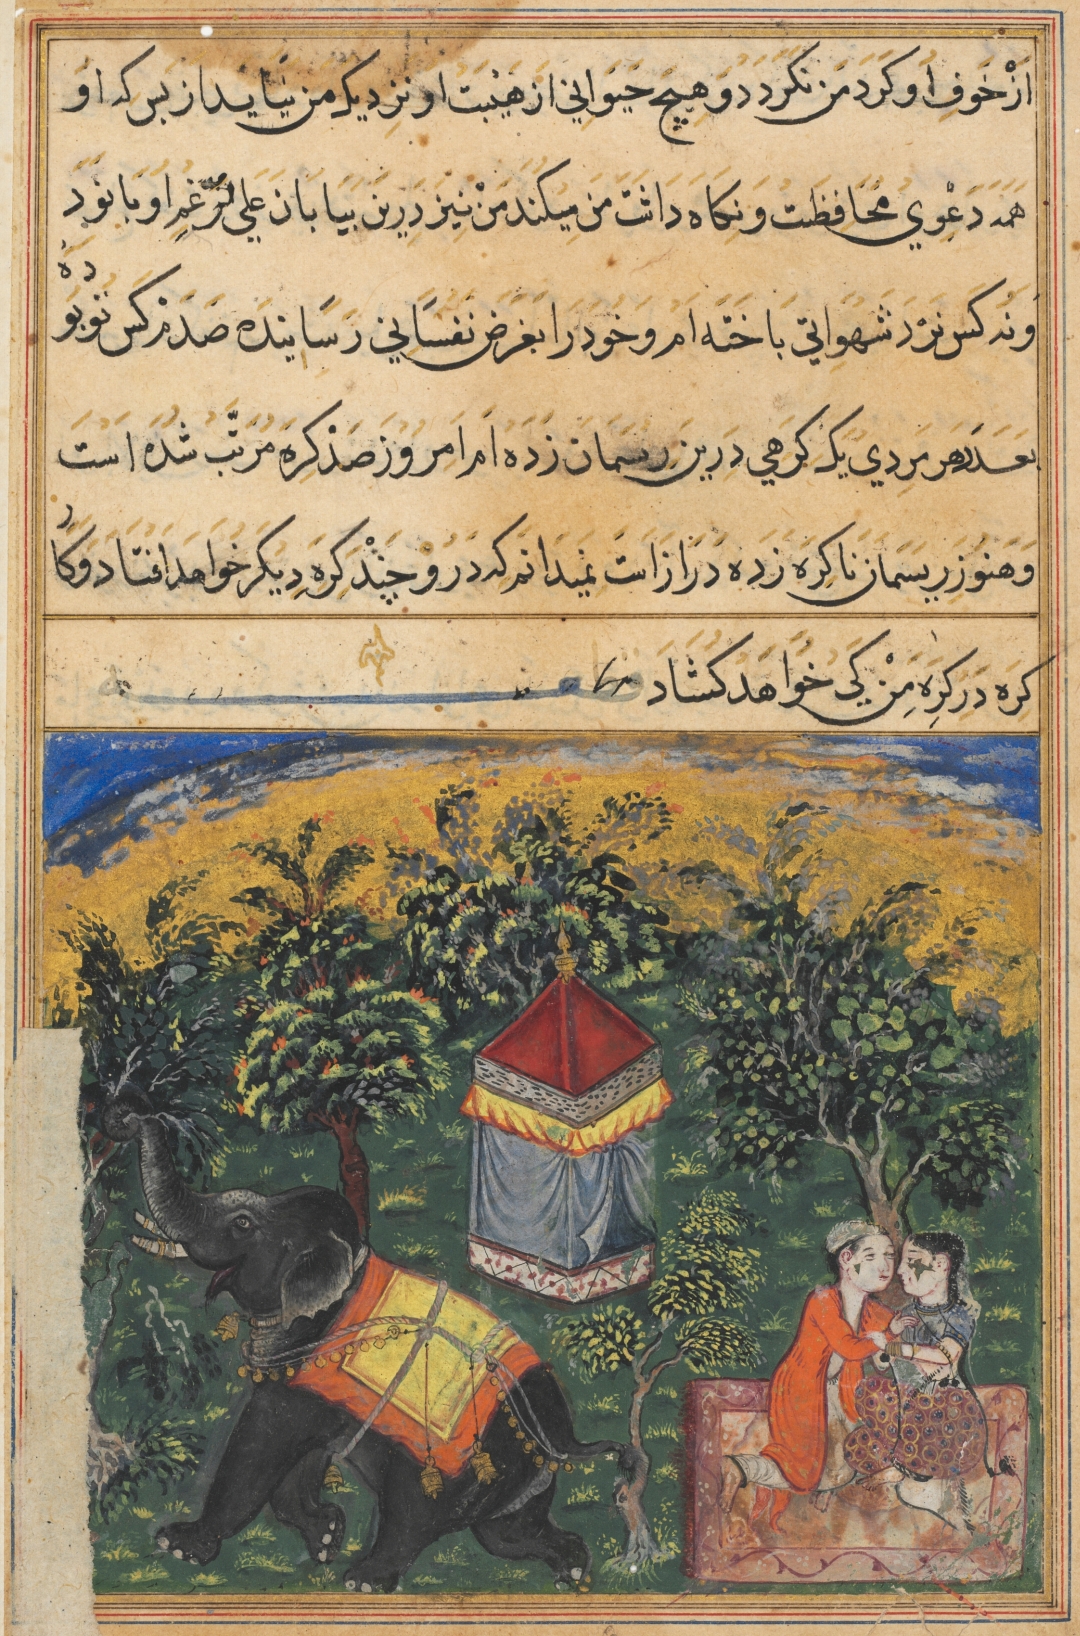 از خوف او کرد من نکردد و هیچ حیوانی از هیبت او نزدیک من نیاید از بس که او
همه دعوی محافظت و نکاه داشت من میکند من نیز درین بیابان علی الرغم او با نود
و نه کس نرد شهوانی باخته ام و خود را بغرض نفسانی رسانیده صدم کس تو بوده
بعد هر مردی یک کرهی درین ریسمان زده ام امروز صد کره مرتب شده است
و هنوز ریسمان ناکره زده دراز است نمیدانم که درو چند کره دیکر خواهد افتاد و کار
کره در کره من کی خواهد کشاد